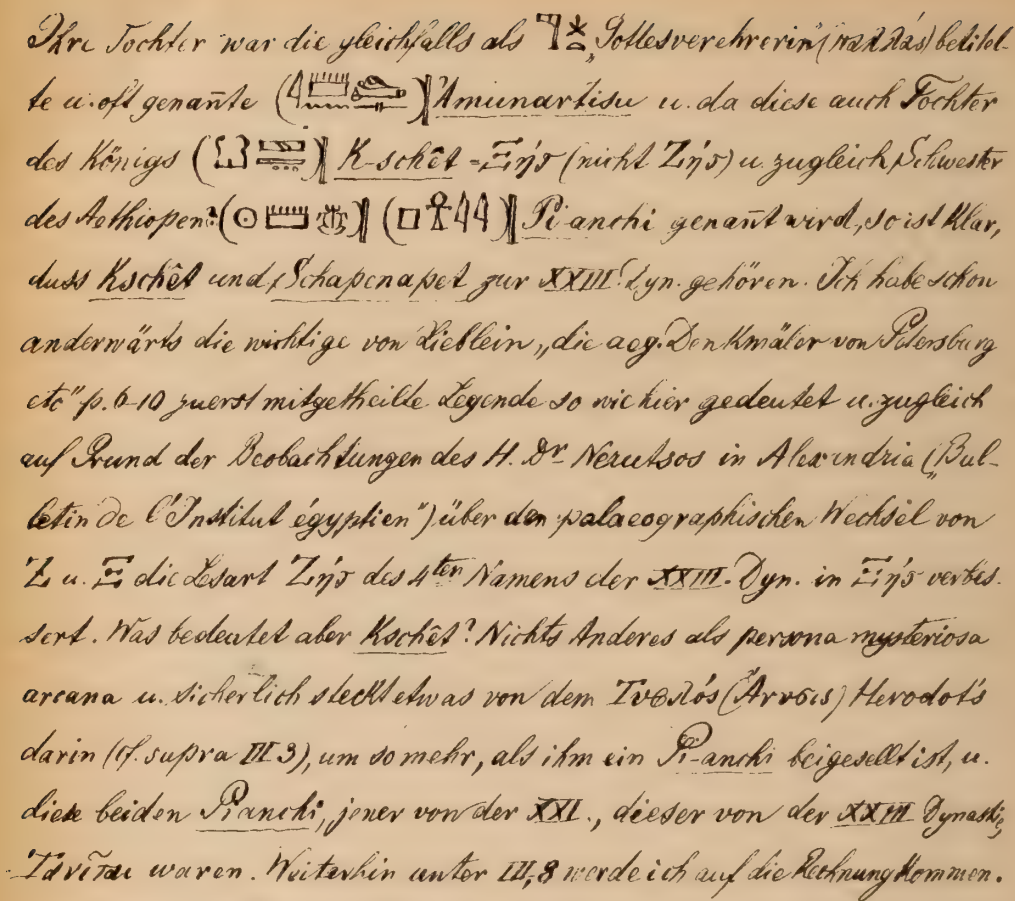 Ihre Tochter war die gleichfalls als 𓊹𓇼 „Gottesverehrerin" (παλλάς) betitel-
te u. oft genañte Amunartisu u. da diese auch Tochter
des Königs K-schêt = Ξήτ (nicht Ζήτ) u. zugleich Schwester
des Aethiopen: Pianchi genañt wird, so ist klar,
dass Kschêt und Schapenapet zur XXIII. Dyn. gehören. Ich habe schon
anderwärts die wichtige von Lieblein „die aeg. Denkmäler von Petersburg
etc" p. 6-10 zuerst mitgetheilte Legende so wie hier gedeutet u. zugleich
auf Grund der Beobachtungen des H. Dr Nerutsos in Alexandria („Bul-
letin de l'Institut égyptien") über den palaeographischen Wechsel von
Ζ u. Ξ die Lesart Ζήτ des 4ten Namens der XXIII. Dyn. in Ξήτ verbes-
sert. Was bedeutet aber Kschêt? Nichts Anderes als persona mysteriosa
arcana u. sicherlich steckt etwas von dem Τυφλός (Ἄνυσις) Herodot's
darin (cf. supra III 3), um so mehr, als ihm ein Pi-anchi beigesellt ist, u.
diese beiden Pianchi, jener von der XXI., dieser von der XXIII Dynastie,
Τανῖται waren. Weiterhin unter III, 8 werde ich auf die Rechnung kommen.